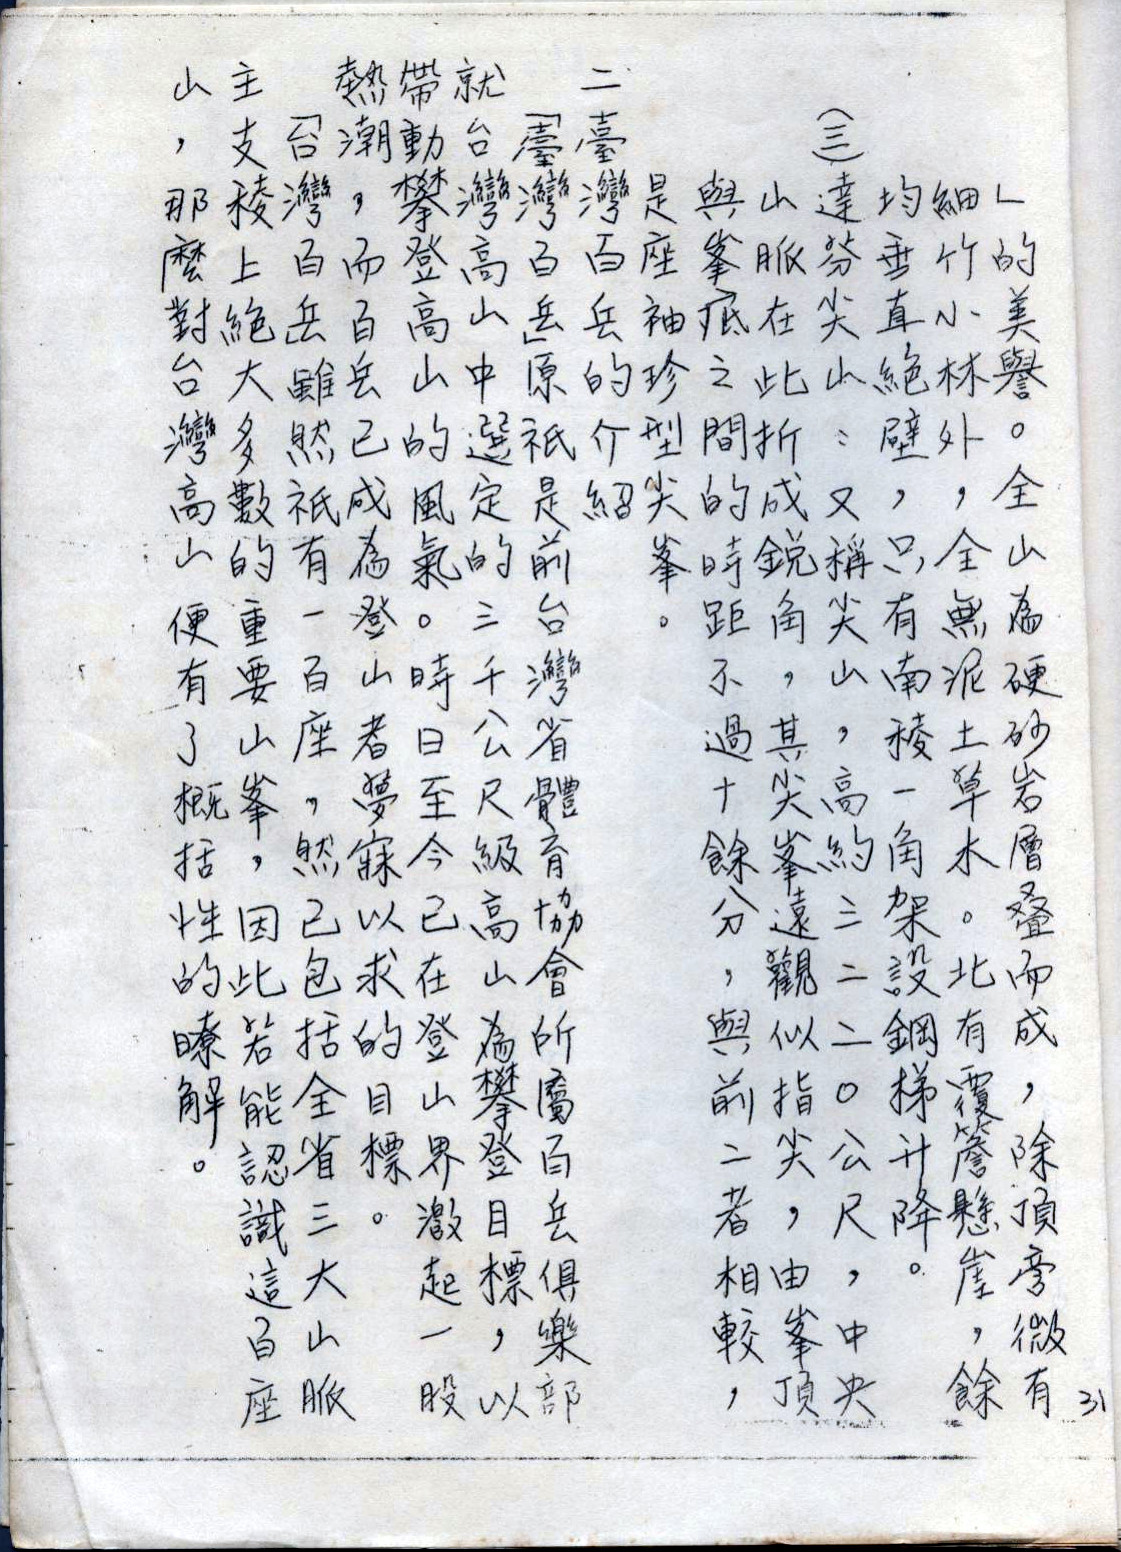 」的美譽。全山為硬砂岩層叠而成，除頂旁微有
細竹小林外，全無泥土草木。北有覆簷懸崖，餘
均垂直絕壁，只有南稜一角架設鋼梯升降。
(三)達芬尖山：又稱尖山，高約三二二〇公尺，中央
山脈在此折成銳角，其尖峯遠觀似指尖，由峯頂
與峯底之間的時距不過十餘分，與前二者相較，
是座袖珍型尖峯。
二臺灣百岳的介紹
「臺灣百岳」原祇是前台灣省體育協會所屬百岳俱樂部
就台灣高山中選定的三千公尺級高山為攀登目標，以
帶動攀登高山的風氣。時日至今已在登山界激起一股
熱潮，而百岳已成為登山者夢寐以求的目標。
「台灣百岳」雖然祇有一百座，然已包括全省三大山脈
主支稜上絕大多數的重要山峯，因此若能認識這百座
山，那麼對台灣高山便有了概括性的瞭解。
31